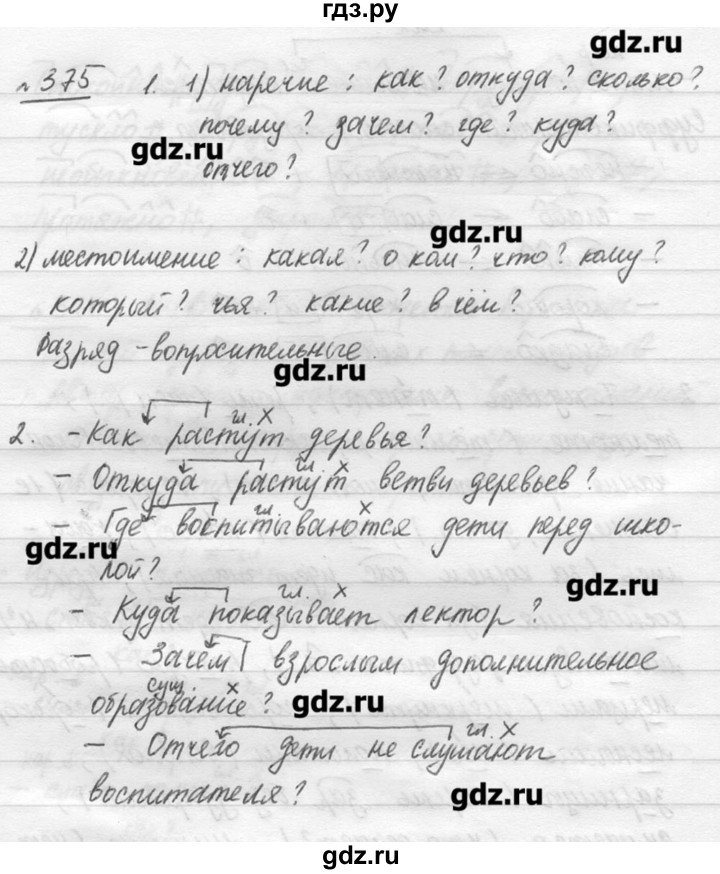 гдз.ру
gdz.ru
№375 1. 1) наречие : как? откуда? сколько?
почему? зачем? где? куда?
gdz.ru
отчего?
gdz.ru
2) местоимение : какая? о ком? что? кому?
который? чья? какие? в чём?
Разряд - вопросительные.
gdz.ru
гл. х
2. - Как растут деревья?
гл. х
- Откуда растут ветви деревьев?
гл. х
- Где воспитываются дети перед шко-
gdz.ru
лой?
gdz.ru
гл. х
- Куда показывает лектор?
- Зачем взрослым дополнительное
сущ. х
образование?
gdz.ru
гл. х
- Отчего дети не слушают
воспитателя?
gdz.ru
gdz.ru